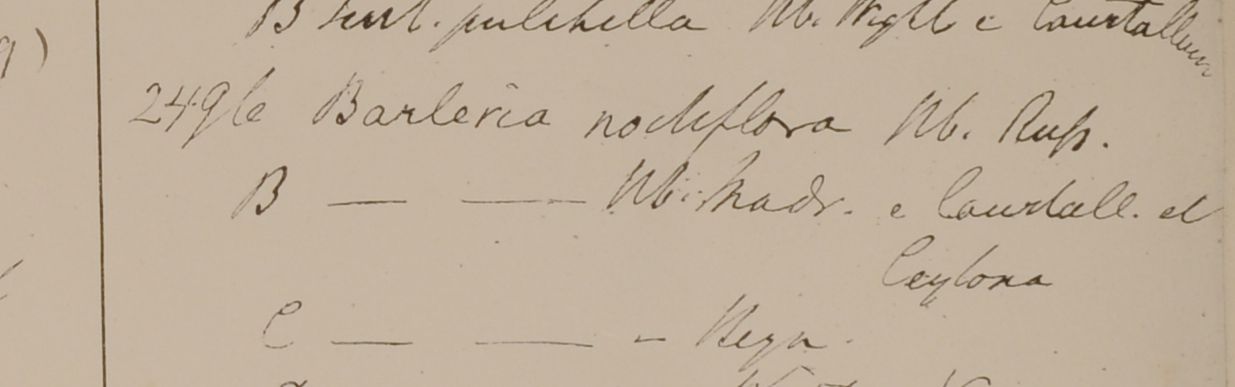 B Herb. pulchella Hb. Wight e Courtallum
249be Barleria nodiflora Hb. Russ.
B — — Hb. Madr. e Courtall. et
Ceylona
C — — - Heyn.